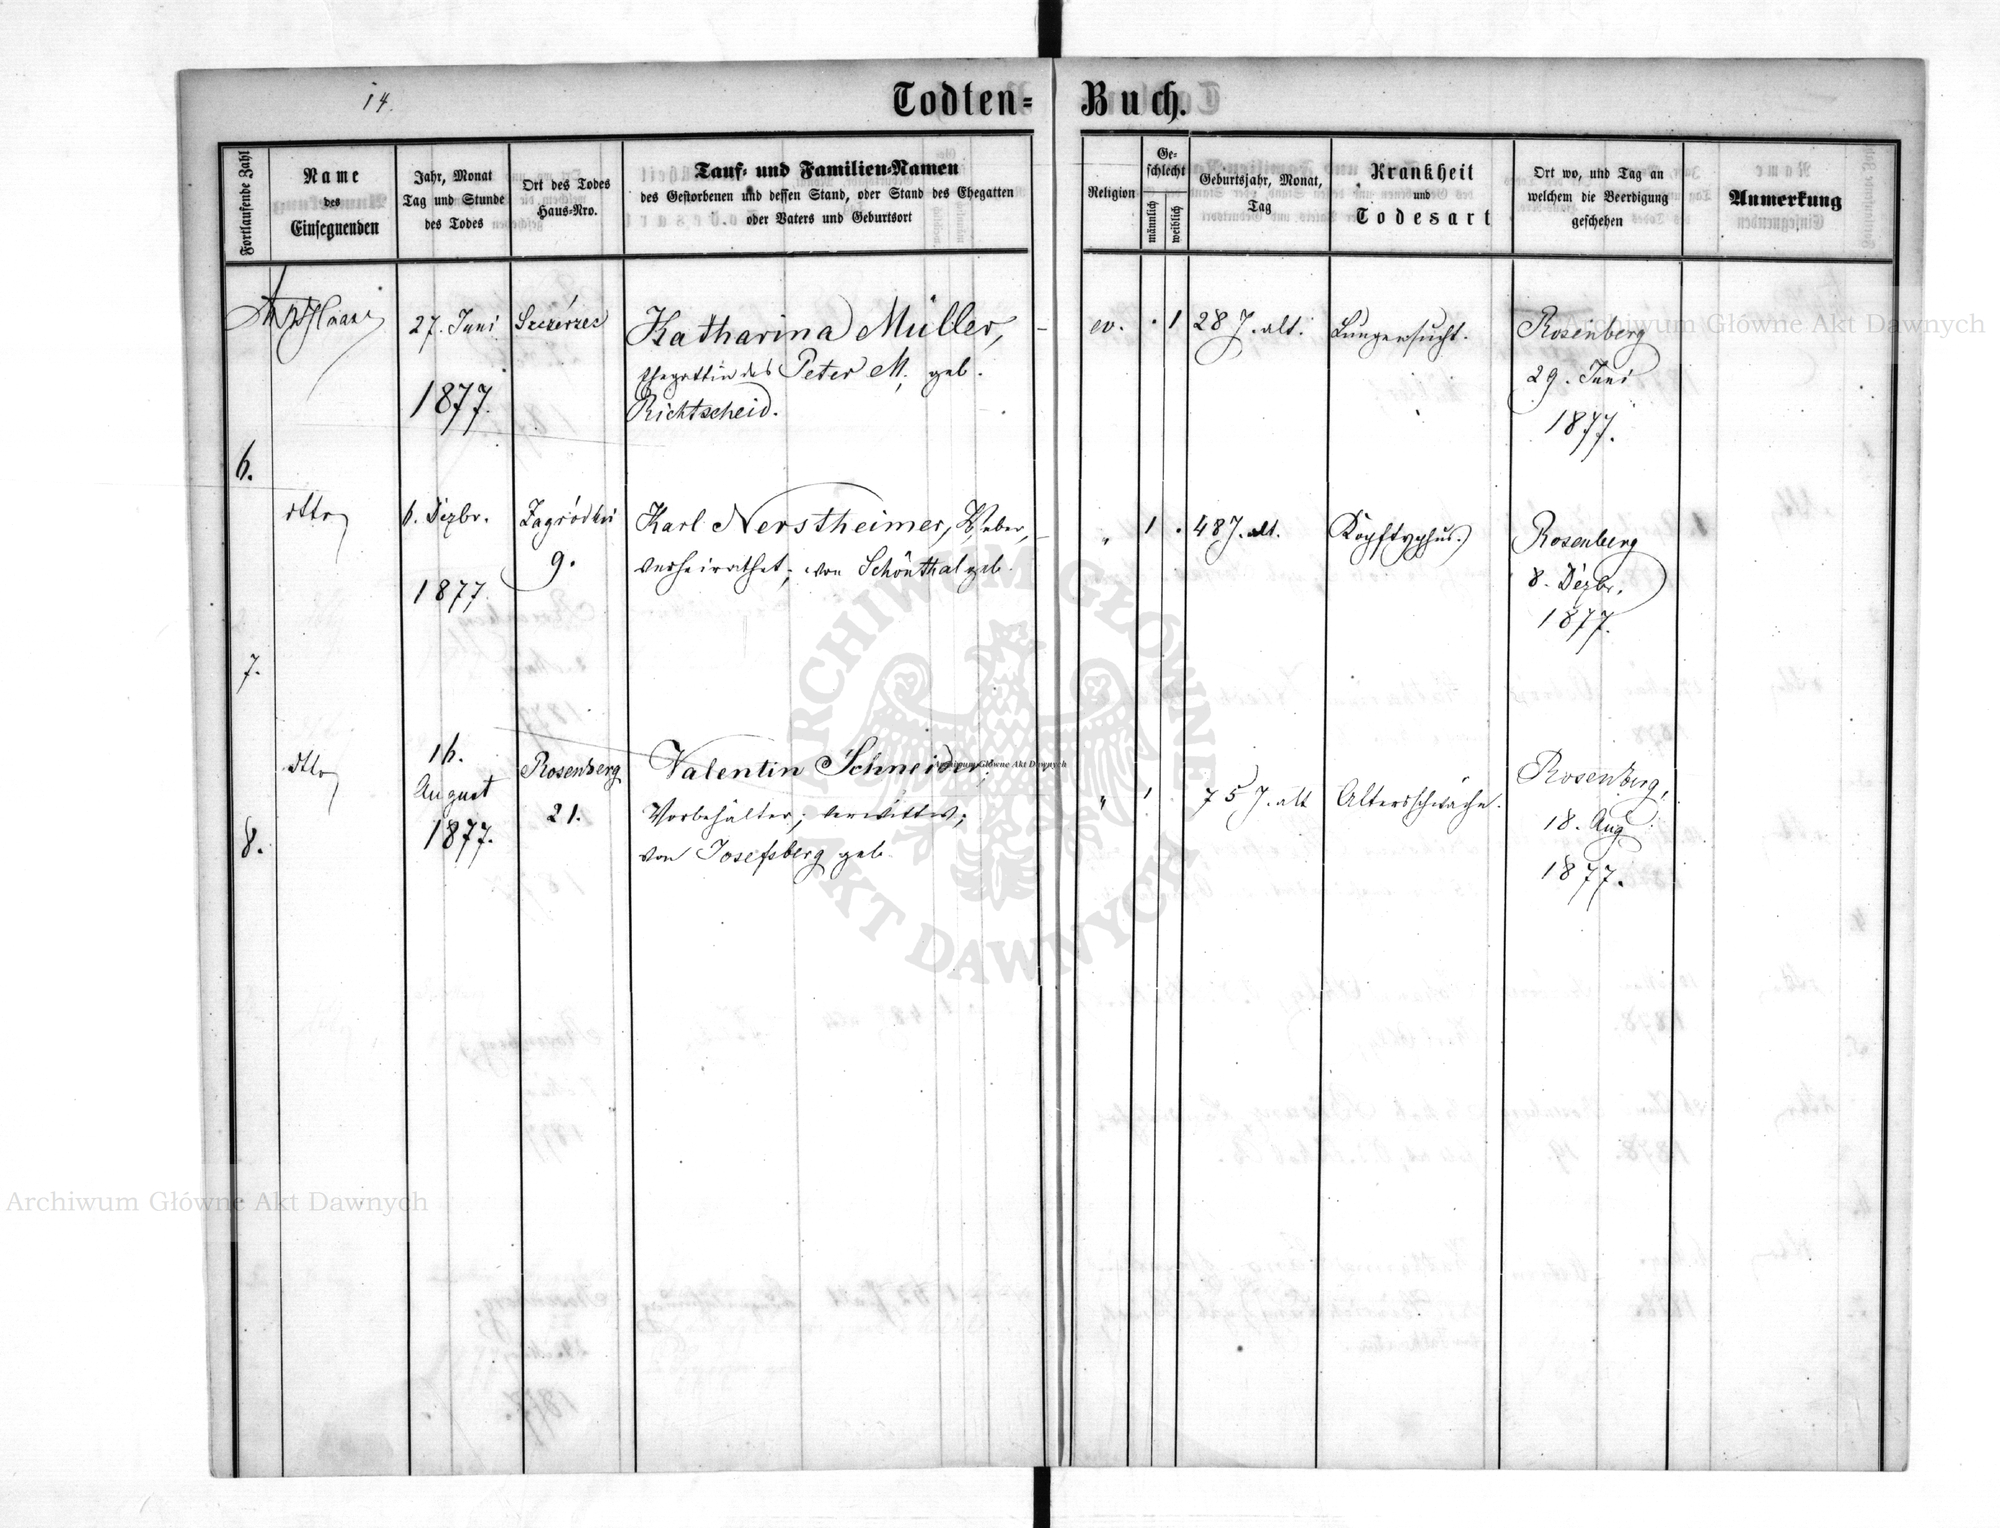 14.
Todten-Buch.
Fortlaufende Zahl
Name
des
Einsegnenden
Jahr, Monat
Tag und Stunde
des Todes
Ort des Todes
Haus-Nro.
Tauf- und Familien-Namen
des Gestorbenen und dessen Stand, oder Stand des Ehegatten
oder Vaters und Geburtsort
Religion
Ge-
schlecht
männlich
weiblich
Geburtsjahr, Monat,
Tag
Krankheit
und
Todesart
Ort wo, und Tag an
welchem die Beerdigung
geschehen
Anmerkung
6.
27. Juni
1877.
Szczerzec
Katharina Müller,
Ehegattin des Peter M., geb.
Richtscheid.
ev.
. 1
28 J. alt.
Lungensucht.
Rosenberg
29. Juni
1877.
7.
dtto
6. Dezbr.
1877
Zagródki
9.
Karl Nerstheimer, Weber,
verheirathet; von Schönthal geb.
"
1 .
48 J. alt.
Kopftyphus.
Rosenberg
8. Dezbr.
1877.
8.
dtto
16.
August
1877.
Rosenberg
21.
Valentin Schneider;
Vorbehälter; verwittw;
von Josefsberg geb.
"
1
75 J. alt
Altersschwäche.
Rosenberg,
18. Aug.
1877.
Archiwum Główne Akt Dawnych
ARCHIWUM GŁÓWNE
AKT DAWNYCH
Archiwum Główne Akt Dawnych
Archiwum Główne Akt Dawnych